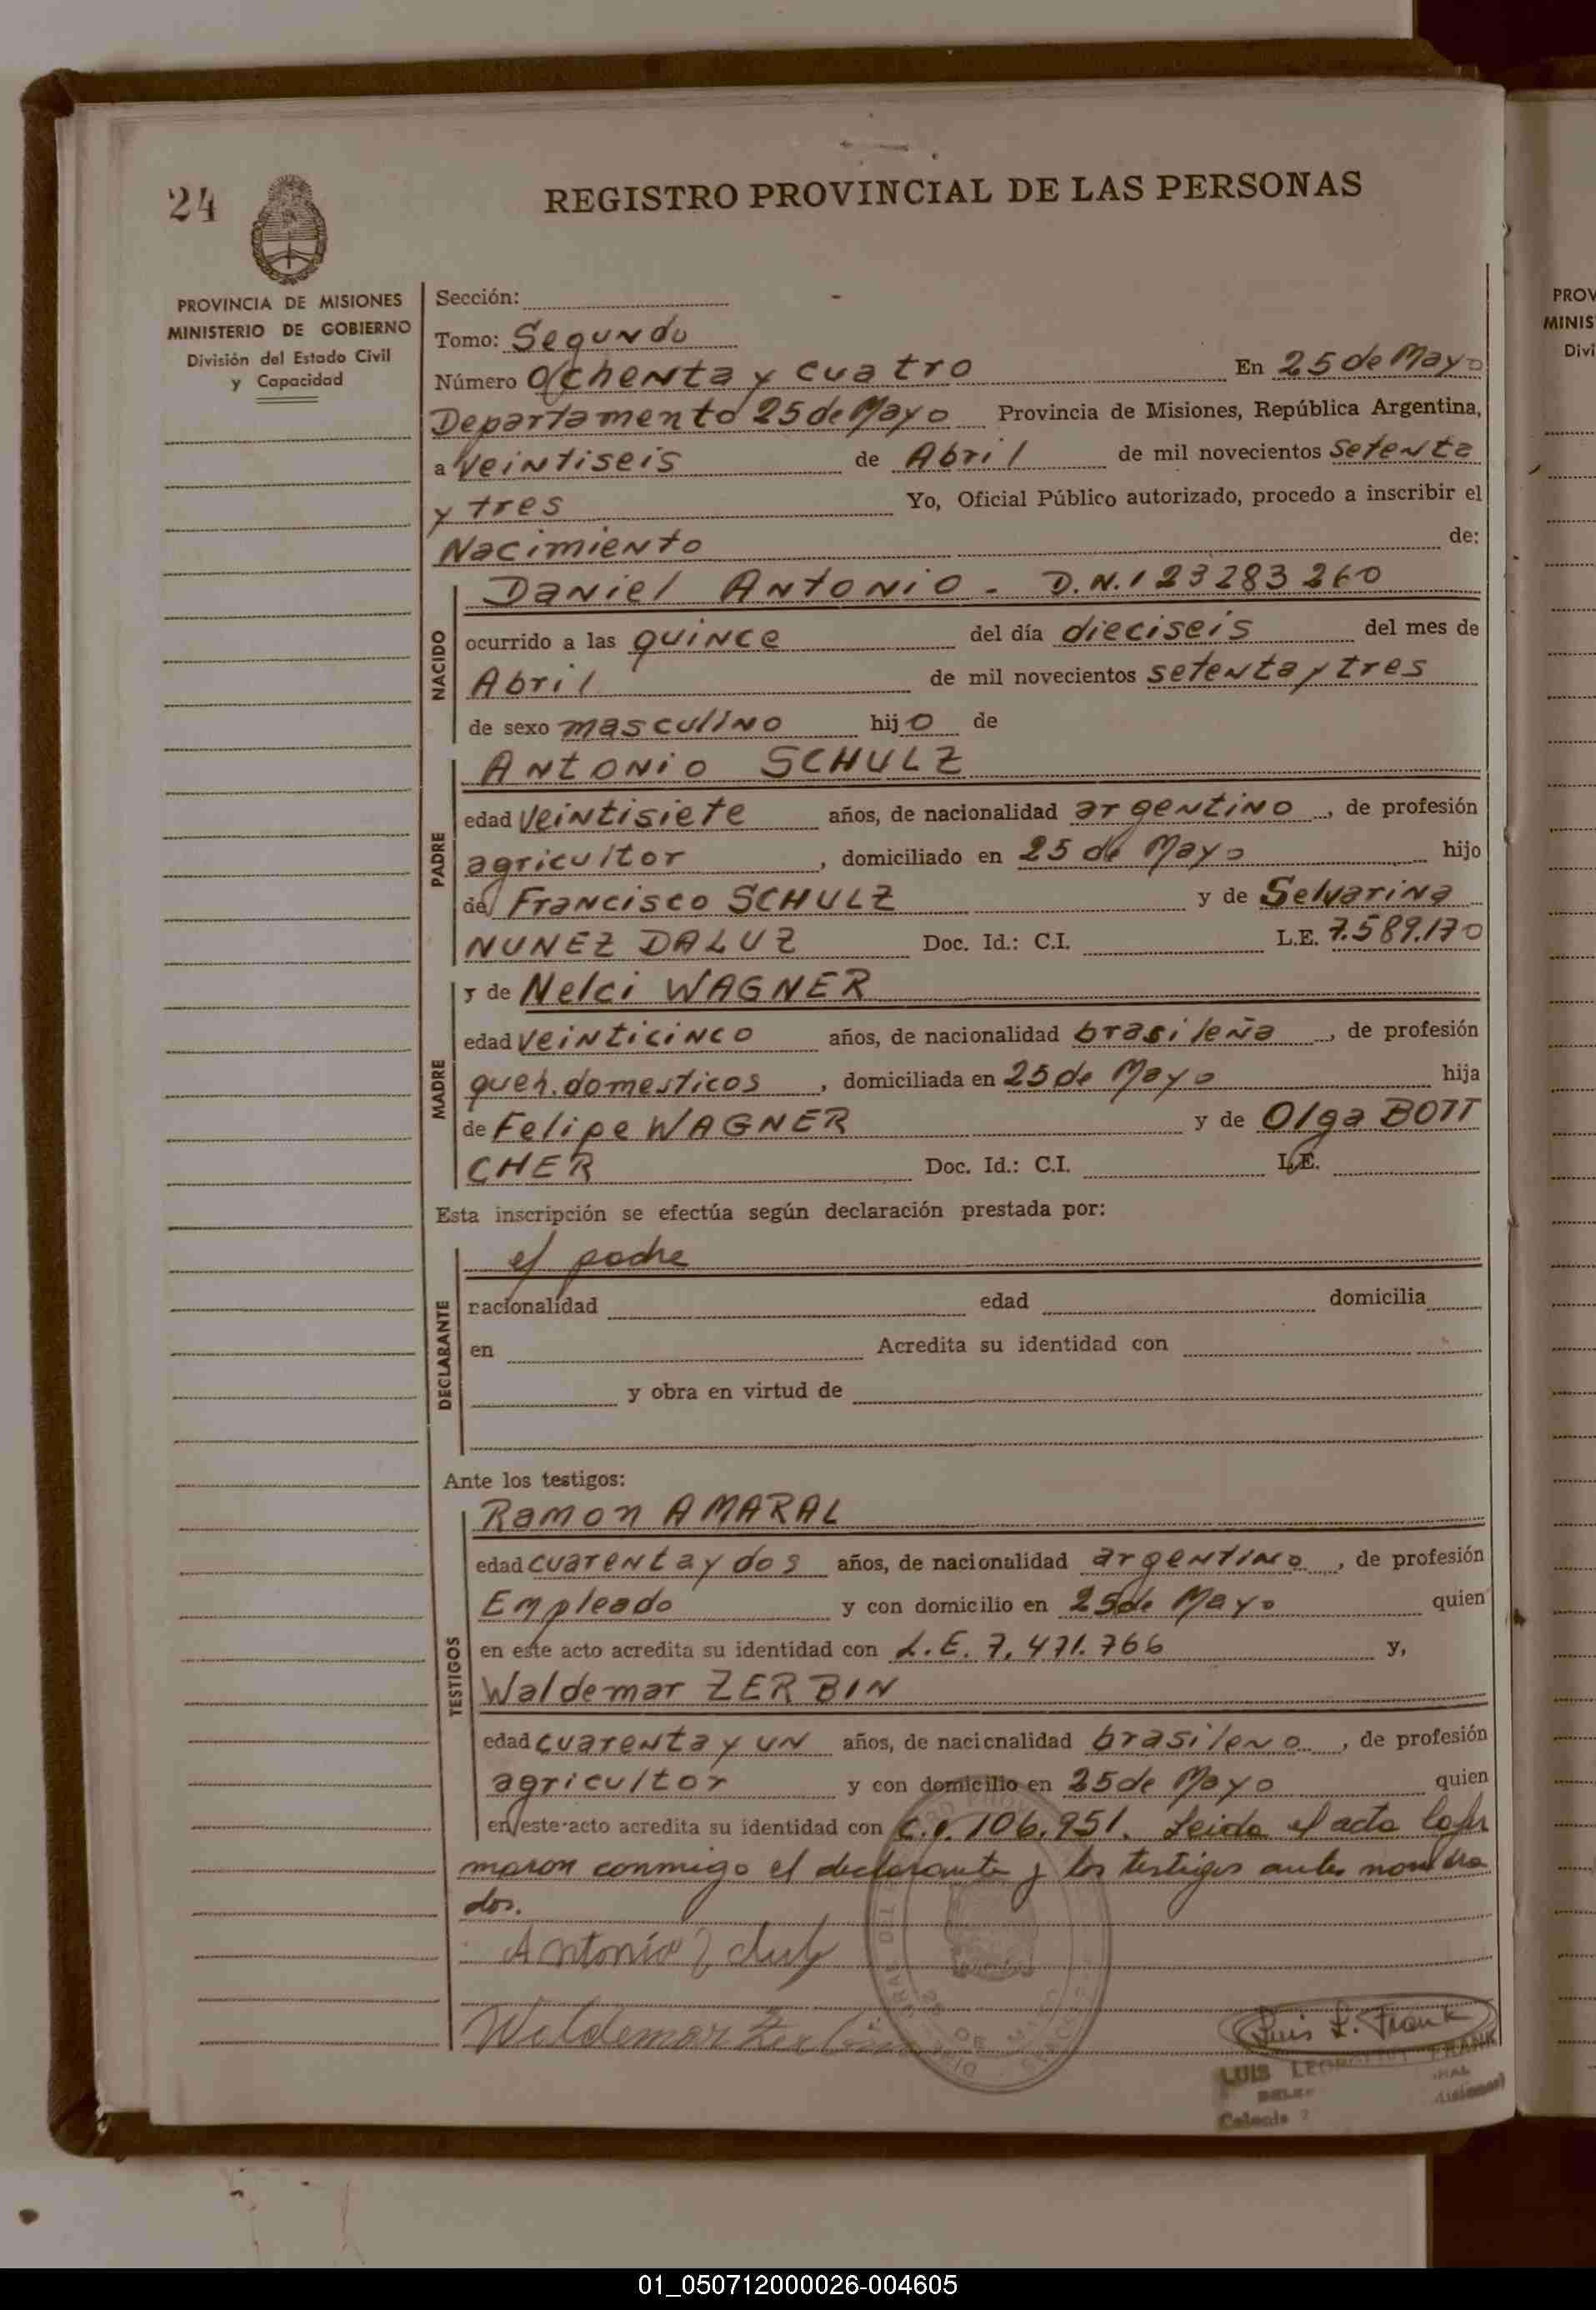 24
REGISTRO PROVINCIAL DE LAS PERSONAS
PROVINCIA DE MISIONES
MINISTERIO DE GOBIERNO
División del Estado Civil
y Capacidad
Sección:
Tomo: Segundo
Número Ochenta y cuatro En 25 de Mayo
Departamento 25 de Mayo Provincia de Misiones, República Argentina,
a veintiseis de Abril de mil novecientos setenta
y tres Yo, Oficial Público autorizado, procedo a inscribir el
Nacimiento de:
NACIDO
Daniel Antonio - D.N.I 23283260
ocurrido a las quince del día dieciseis del mes de
Abril de mil novecientos setenta y tres
de sexo masculino hijo de
PADRE
Antonio SCHULZ
edad veintisiete años, de nacionalidad argentino, de profesión
agricultor, domiciliado en 25 de Mayo hijo
de Francisco SCHULZ y de Selvarina
NUNEZ DALUZ Doc. Id.: C.I. L.E. 7.589.170
MADRE
y de Nelci WAGNER
edad veinticinco años, de nacionalidad brasileña, de profesión
queh. domesticos, domiciliada en 25 de Mayo hija
de Felipe WAGNER y de Olga BOTT
CHER Doc. Id.: C.I. L.E.
Esta inscripción se efectúa según declaración prestada por:
DECLARANTE
el padre
nacionalidad edad domicilia
en Acredita su identidad con
y obra en virtud de
Ante los testigos:
TESTIGOS
Ramon AMARAL
edad cuarenta y dos años, de nacionalidad argentino, de profesión
Empleado y con domicilio en 25 de Mayo quien
en este acto acredita su identidad con L.E. 7.471.766 y,
Waldemar ZERBIN
edad cuarenta y un años, de nacionalidad brasileno, de profesión
agricultor y con domicilio en 25 de Mayo quien
en este acto acredita su identidad con C.I. 106.951. Leida el acta la fir
maron conmigo el declarante y los testigos antes nombra
dos.
Antonio Schulz
Waldemar Zerbin
Luis L. Frank
LUIS FRANK
PROV
MINIS
Divi
01_050712000026-004605